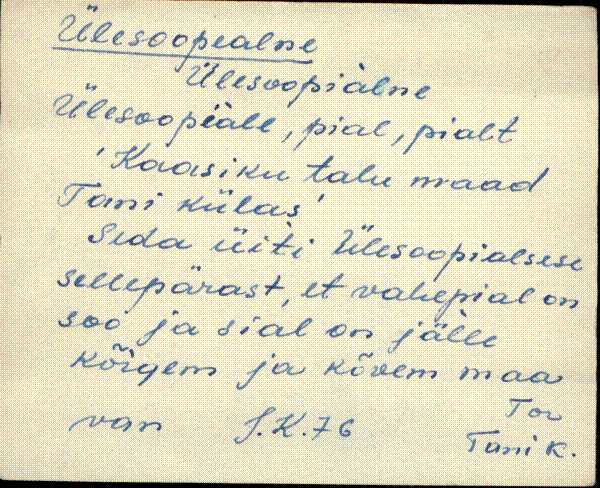 Ülesoopealne
Ülesoopiàlne
Ülesoopiàle, pial, pialt
'Kaasiku talu maad
Tani külas'
Seda üiti Ülesoopialsese
sellepärast, et vahepial on
soo ja sial on jälle
kõrgem ja kõvem maa
Tor
van S.K.76
Tani k.